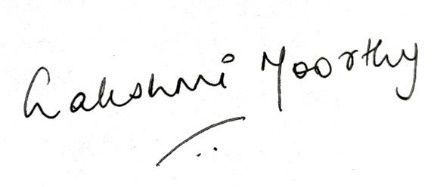 Lakshmi Moorthy